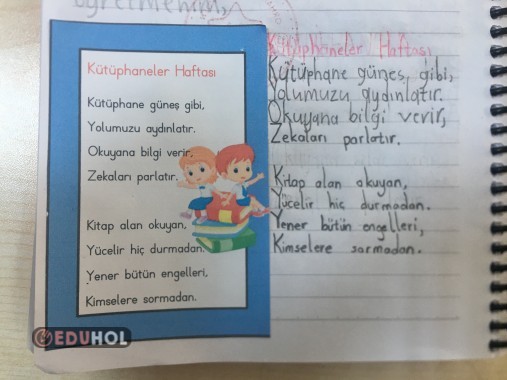 öğretmenim,
Kütüphaneler Haftası
Kütüphane güneş gibi,
Yolumuzu aydınlatır.
Okuyana bilgi verir,
Zekaları parlatır.
Kitap alan okuyan,
Yücelir hiç durmadan.
Yener bütün engelleri,
Kimselere sormadan.
Kütüphaneler Haftası
Kütüphane güneş gibi,
Yolumuzu aydınlatır.
Okuyana bilgi verir,
Zekaları parlatır.
Kitap alan okuyan,
Yücelir hiç durmadan.
Yener bütün engelleri,
Kimselere sormadan.
EDUHOL